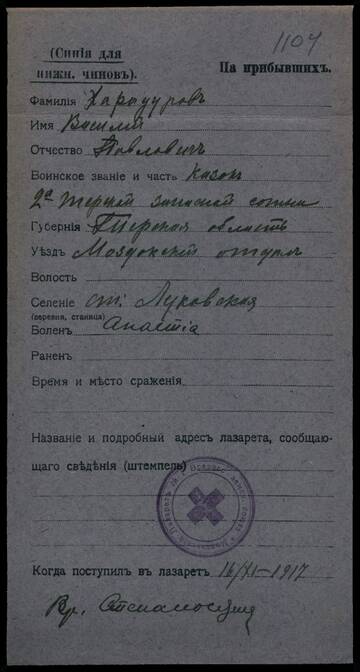 1104
(Синія для
нижн. чиновъ).
На прибывшихъ.
Фамилія Харадуровъ
Имя Василій
Отчество Павловичъ
Воинское званіе и часть Казакъ
2й Терской запасной сотни
Губернія Терская область
Уѣздъ Моздокскій отдѣлъ
Волость
Селеніе ст. Луковская
(деревня, станица)
Боленъ
Раненъ
Время и мѣсто сраженія
Названіе и подробный адресъ лазарета, сообщаю-
щаго свѣдѣнія (штемпель)
Когда поступилъ въ лазаретъ 16/XI–1917
Вр.